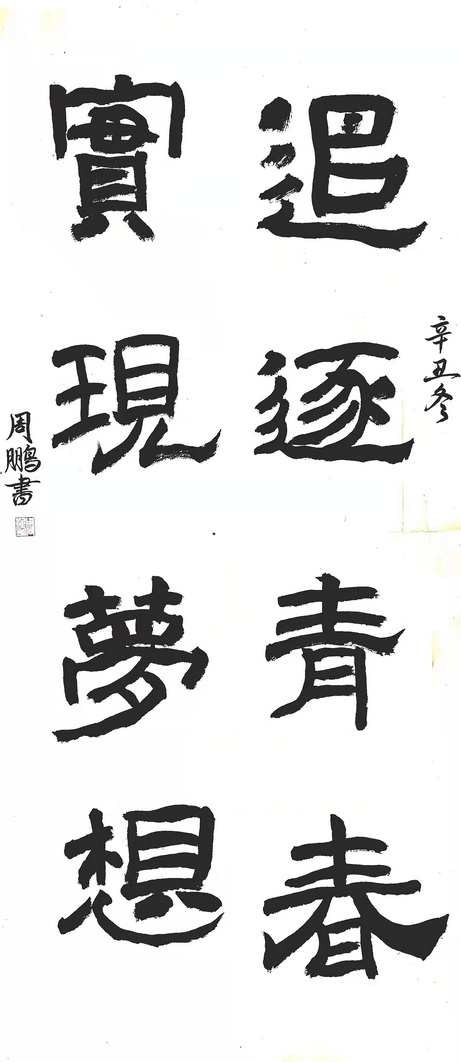 辛丑冬
追逐青春
實現夢想
周鵬書